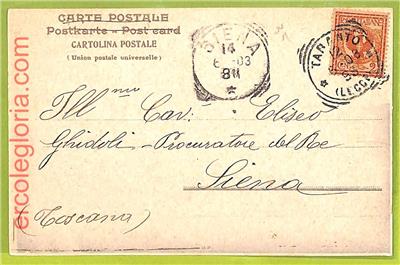 CARTE POSTALE
Postkarte – Post card
CARTOLINA POSTALE
(Union postale universelle)
SIENA
14
03
8M
TARANTO
(LECCE)
Ill mo Cav: Eliseo
Ghidoli - Procuratore del Re
Siena
(Toscana)
ercolegloria.com